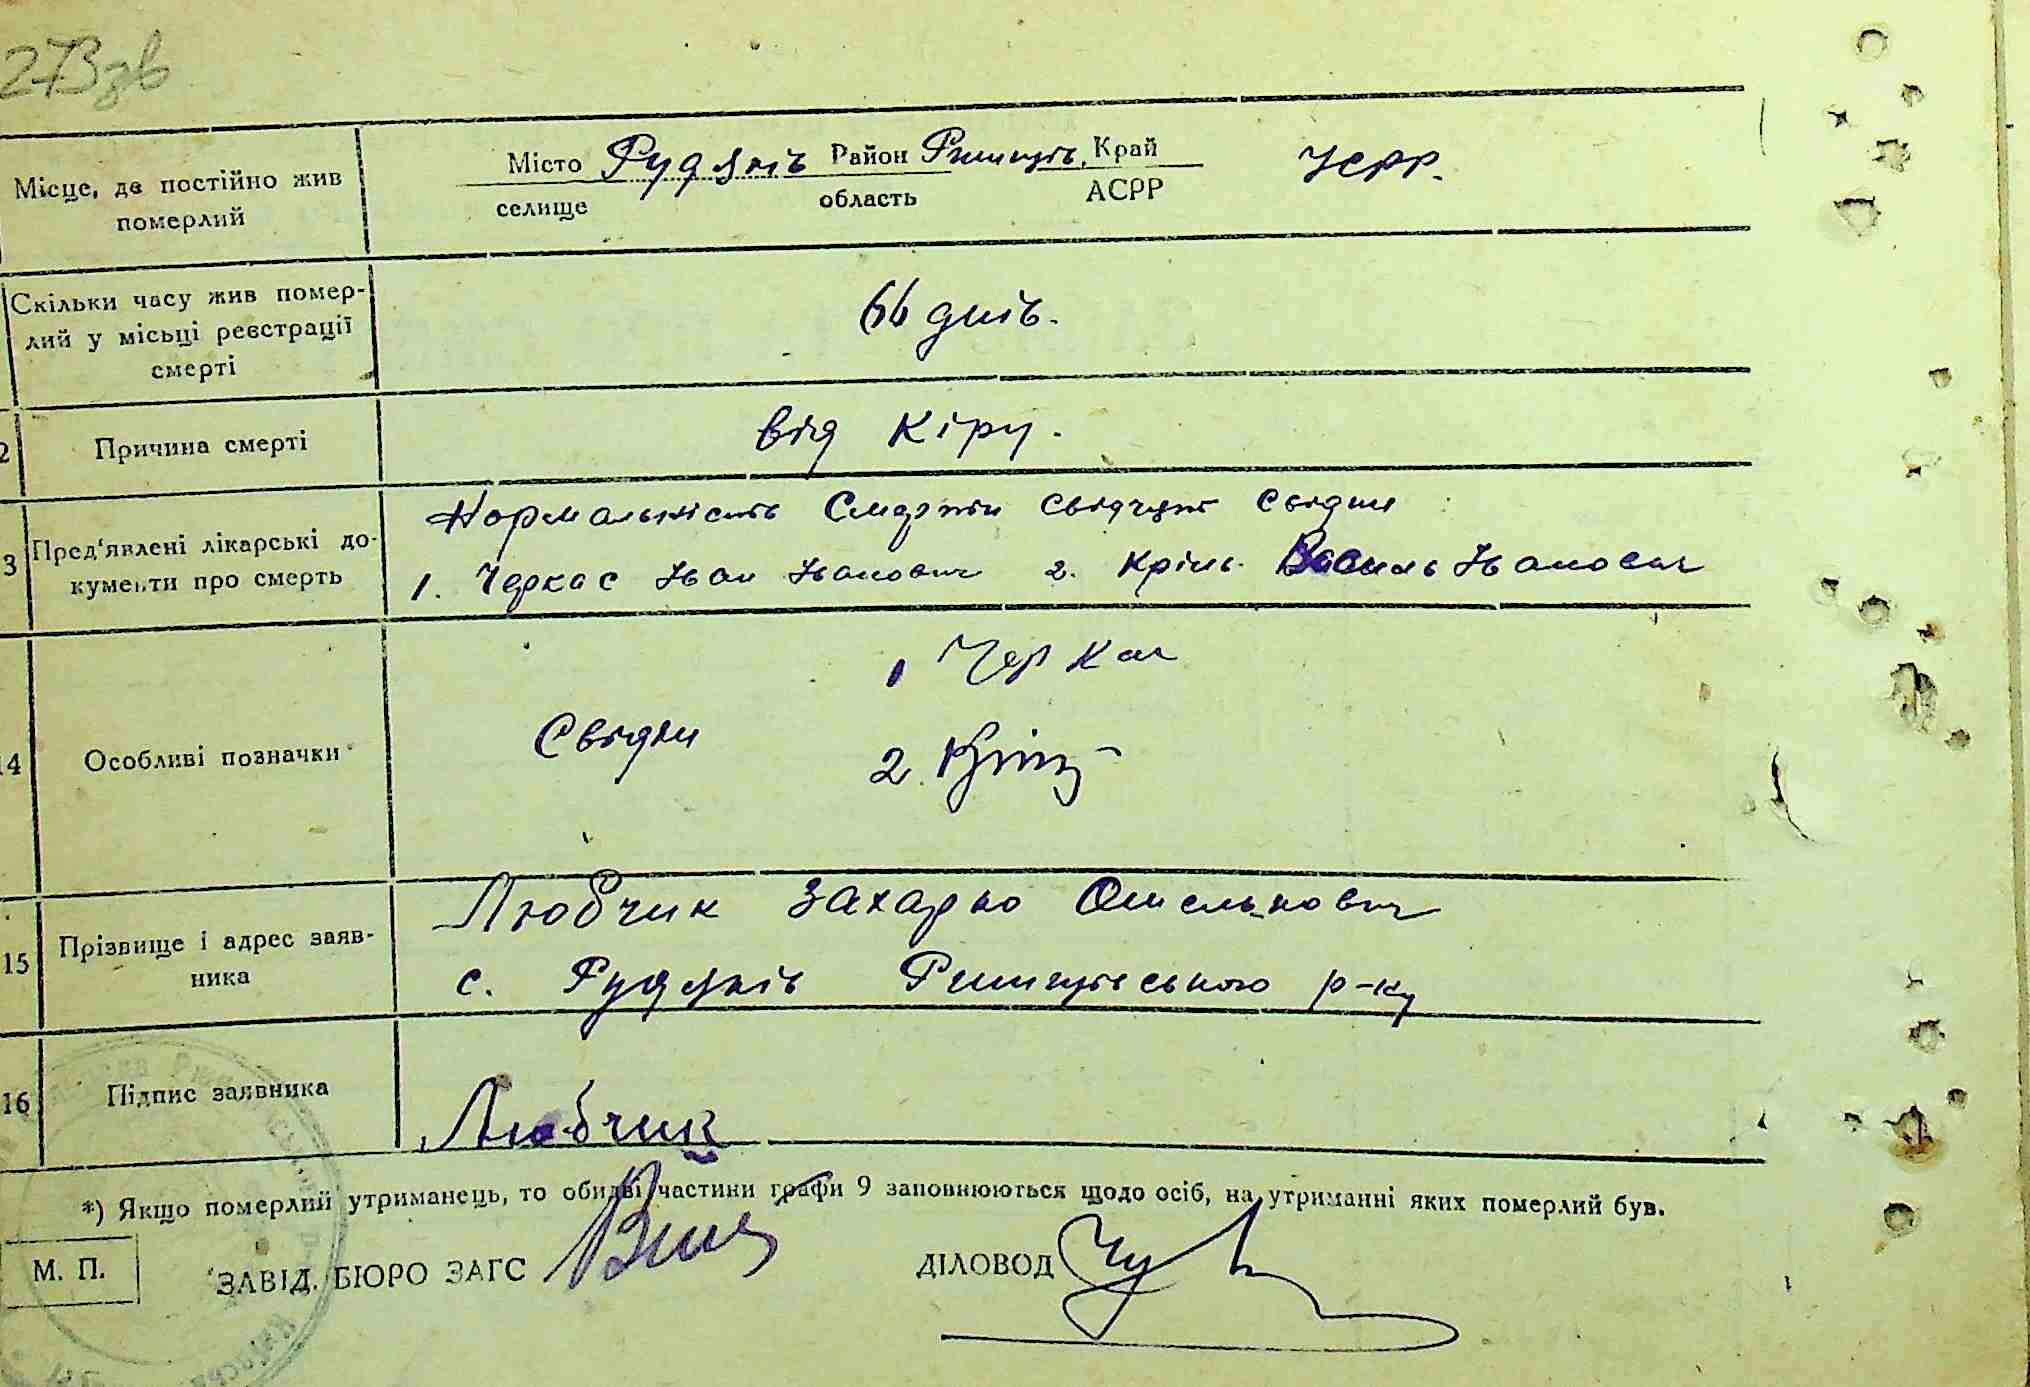 273зв
Місце, де постійно жив
померлий
Місто Рудяків Район Ржищів, Край УСРР.
селище область АСРР
Скільки часу жив помер-
лий у місьці реєстрації
смерті
66 днів.
2 Причина смерті
від Кіру.
3 Пред'явлені лікарські до-
кументи про смерть
Нормальність Смерти свідчут свідки
1. Черкас Іван Іванович 2. Кріль Василь Іванович
14 Особливі позначки
Свідки
1 Черкас
2.
15 Прізвище і адрес заяв-
ника
Любчик Захарко Омелькович
с. Рудяків Ржищівського р-ну
16 Підпис заявника
Любчик
*) Якщо померлий утриманець, то обидві частини графи 9 заповнюються щодо осіб, на утриманні яких померлий був.
М. П.
ЗАВІД. БЮРО ЗАГС
ДІЛОВОД